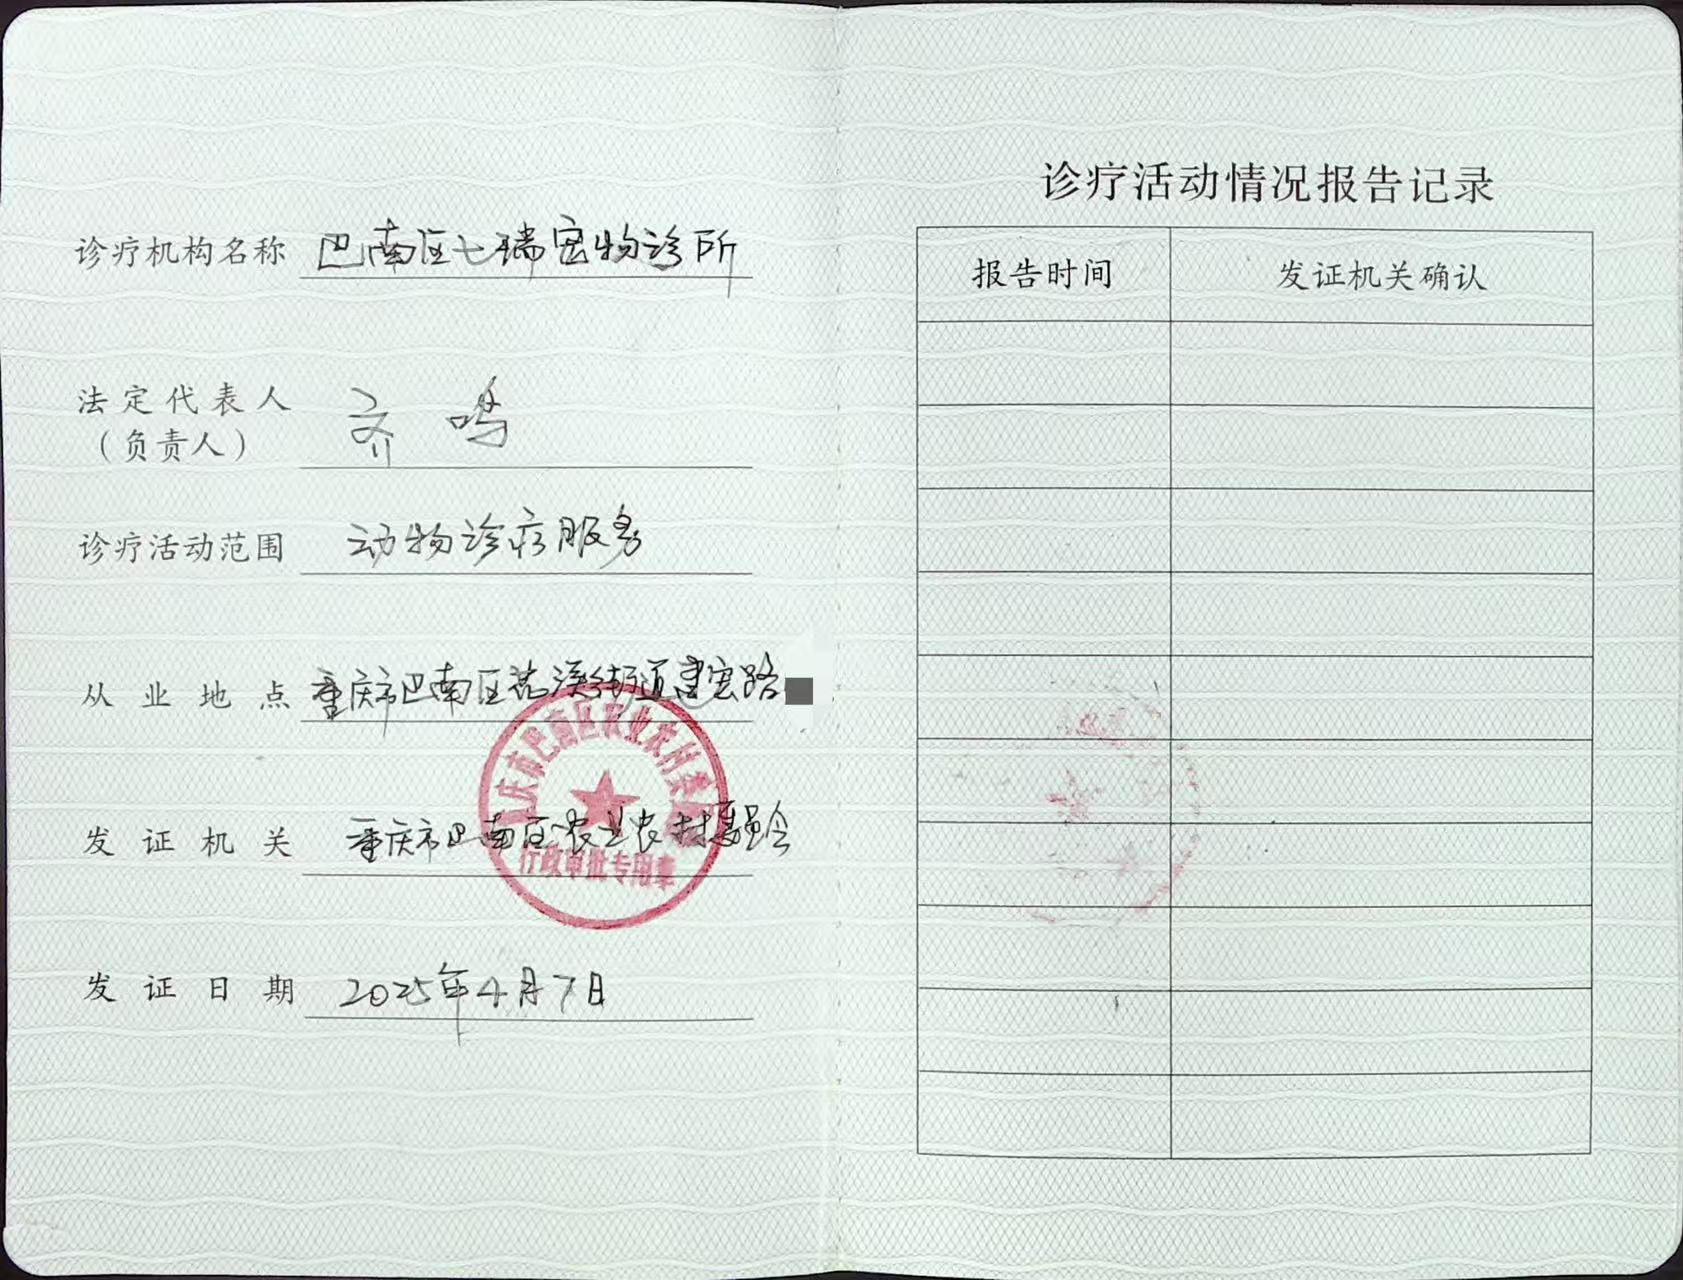 诊疗机构名称 巴南区七瑞宠物诊所
法定代表人
（负责人） 齐鸣
诊疗活动范围 动物诊疗服务
从业地点 重庆市巴南区花溪街道建宏路
发证机关 重庆市巴南区农业农村委员会
重庆市巴南区农业农村委员会
行政审批专用章
发证日期 2025年4月7日
诊疗活动情况报告记录
报告时间 发证机关确认